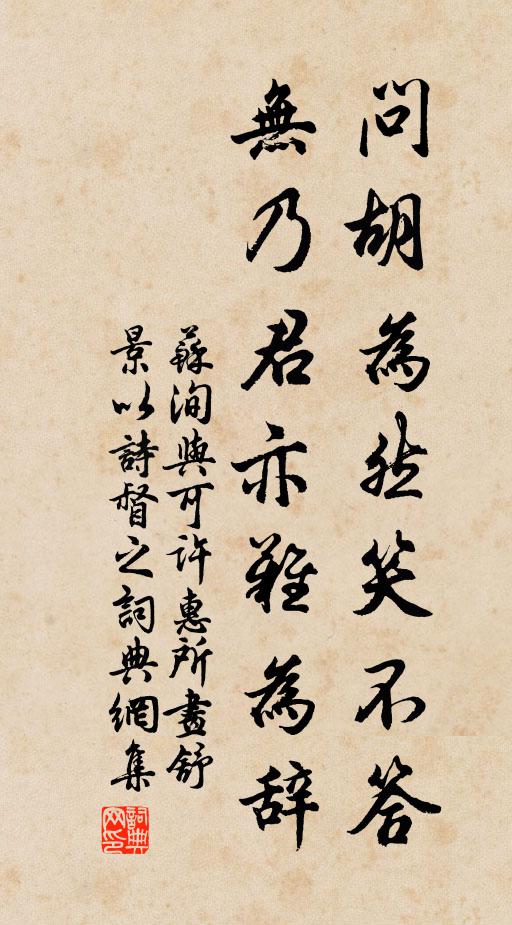 問胡為然笑不答
無乃君亦難為辭
蘇洵與可許惠所畫舒
景以詩督之詞典網集
詞典网印